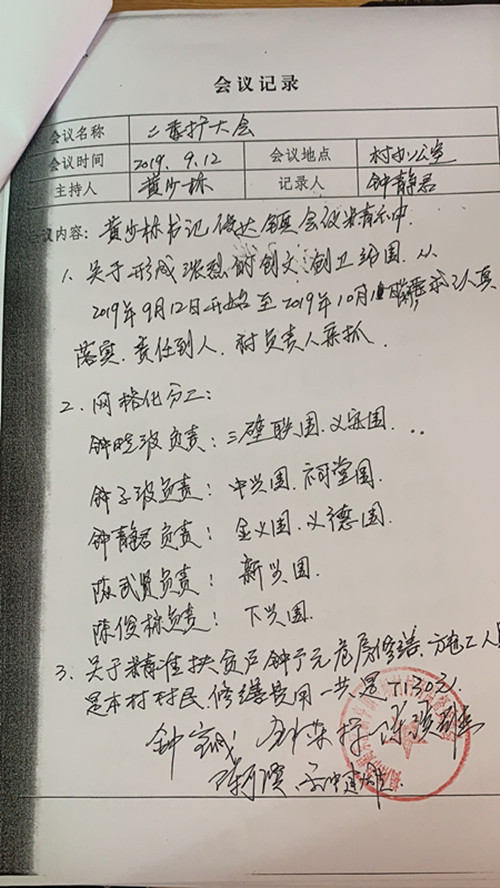 会议记录
会议名称 二委扩大会
会议时间 2019.9.12 会议地点 村办公室
主持人 黄少林 记录人 钟静君
会议内容：黄少林书记传达镇会议精神.
1、关于形成浓烈的创文创卫氛围.从
2019年9月12日开始至2019年10月 认真
落实.责任到人.村负责人亲抓.
2、网格化分工：
钟晓波负责：三壁联围.义安围.
钟子波负责：中兴围.祠堂围.
钟静君负责：金义围.义德围.
陈武贤负责：新兴围.
陈俊栋负责：下兴围.
3、关于精准扶贫户钟 元危房修缮. 工人
是本村村民.修缮费用一共是7130元.